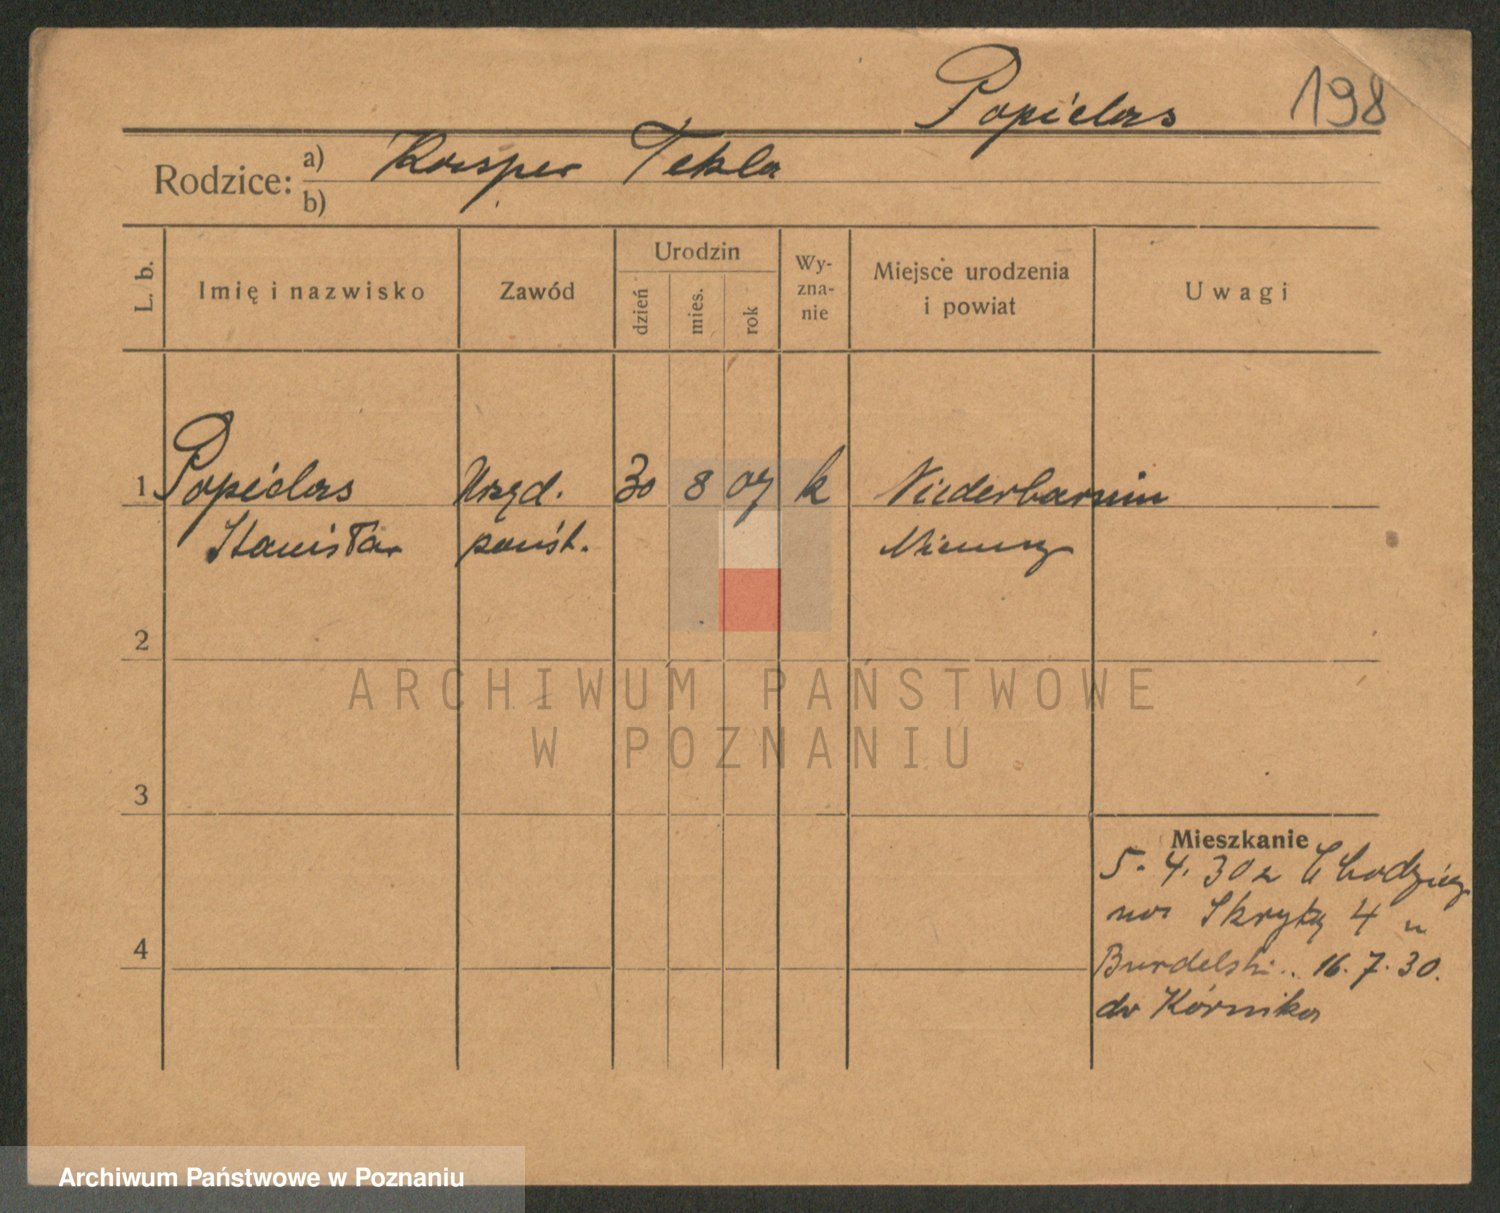 Popielas 198
Rodzice: a) Kasper Tekla
b)
L. b. Imię i nazwisko Zawód Urodzin dzień mies. rok Wy-zna-nie Miejsce urodzenia i powiat Uwagi
1 Popielas Urzęd. 30 8 07 k Niederbarnim
Stanisław państ. Niemcy
2
ARCHIWUM PAŃSTWOWE
W POZNANIU
3
Mieszkanie
5. 4. 30 z Chodzież
na Skrytą 4 u
4
Burdelski.. 16. 7. 30.
do Kórnika
Archiwum Państwowe w Poznaniu